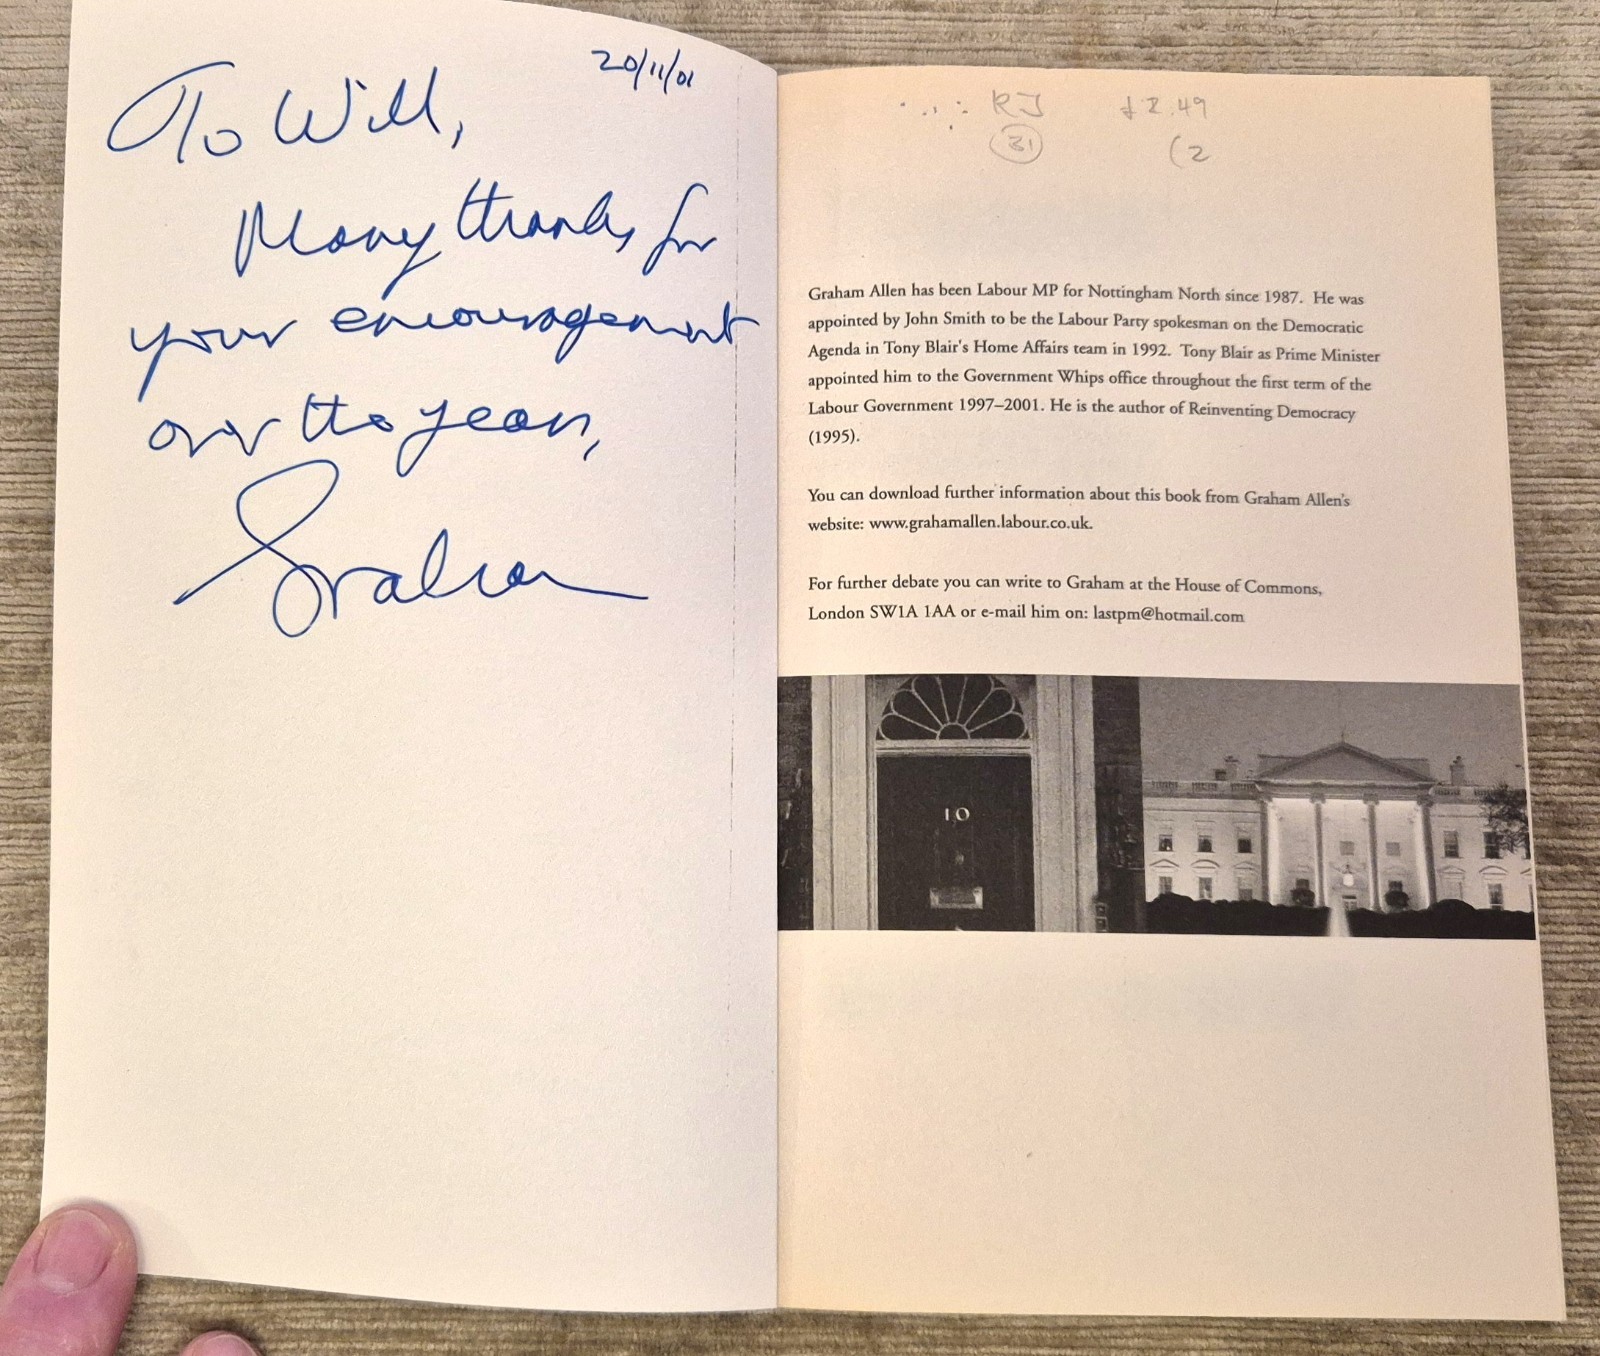 20/11/01
To Will,
Many thanks for
your encouragement
over the years,
Graham
RJ £2.49
31 (2
Graham Allen has been Labour MP for Nottingham North since 1987. He was
appointed by John Smith to be the Labour Party spokesman on the Democratic
Agenda in Tony Blair's Home Affairs team in 1992. Tony Blair as Prime Minister
appointed him to the Government Whips office throughout the first term of the
Labour Government 1997–2001. He is the author of Reinventing Democracy
(1995).
You can download further information about this book from Graham Allen's
website: www.grahamallen.labour.co.uk.
For further debate you can write to Graham at the House of Commons,
London SW1A 1AA or e-mail him on: lastpm@hotmail.com
10